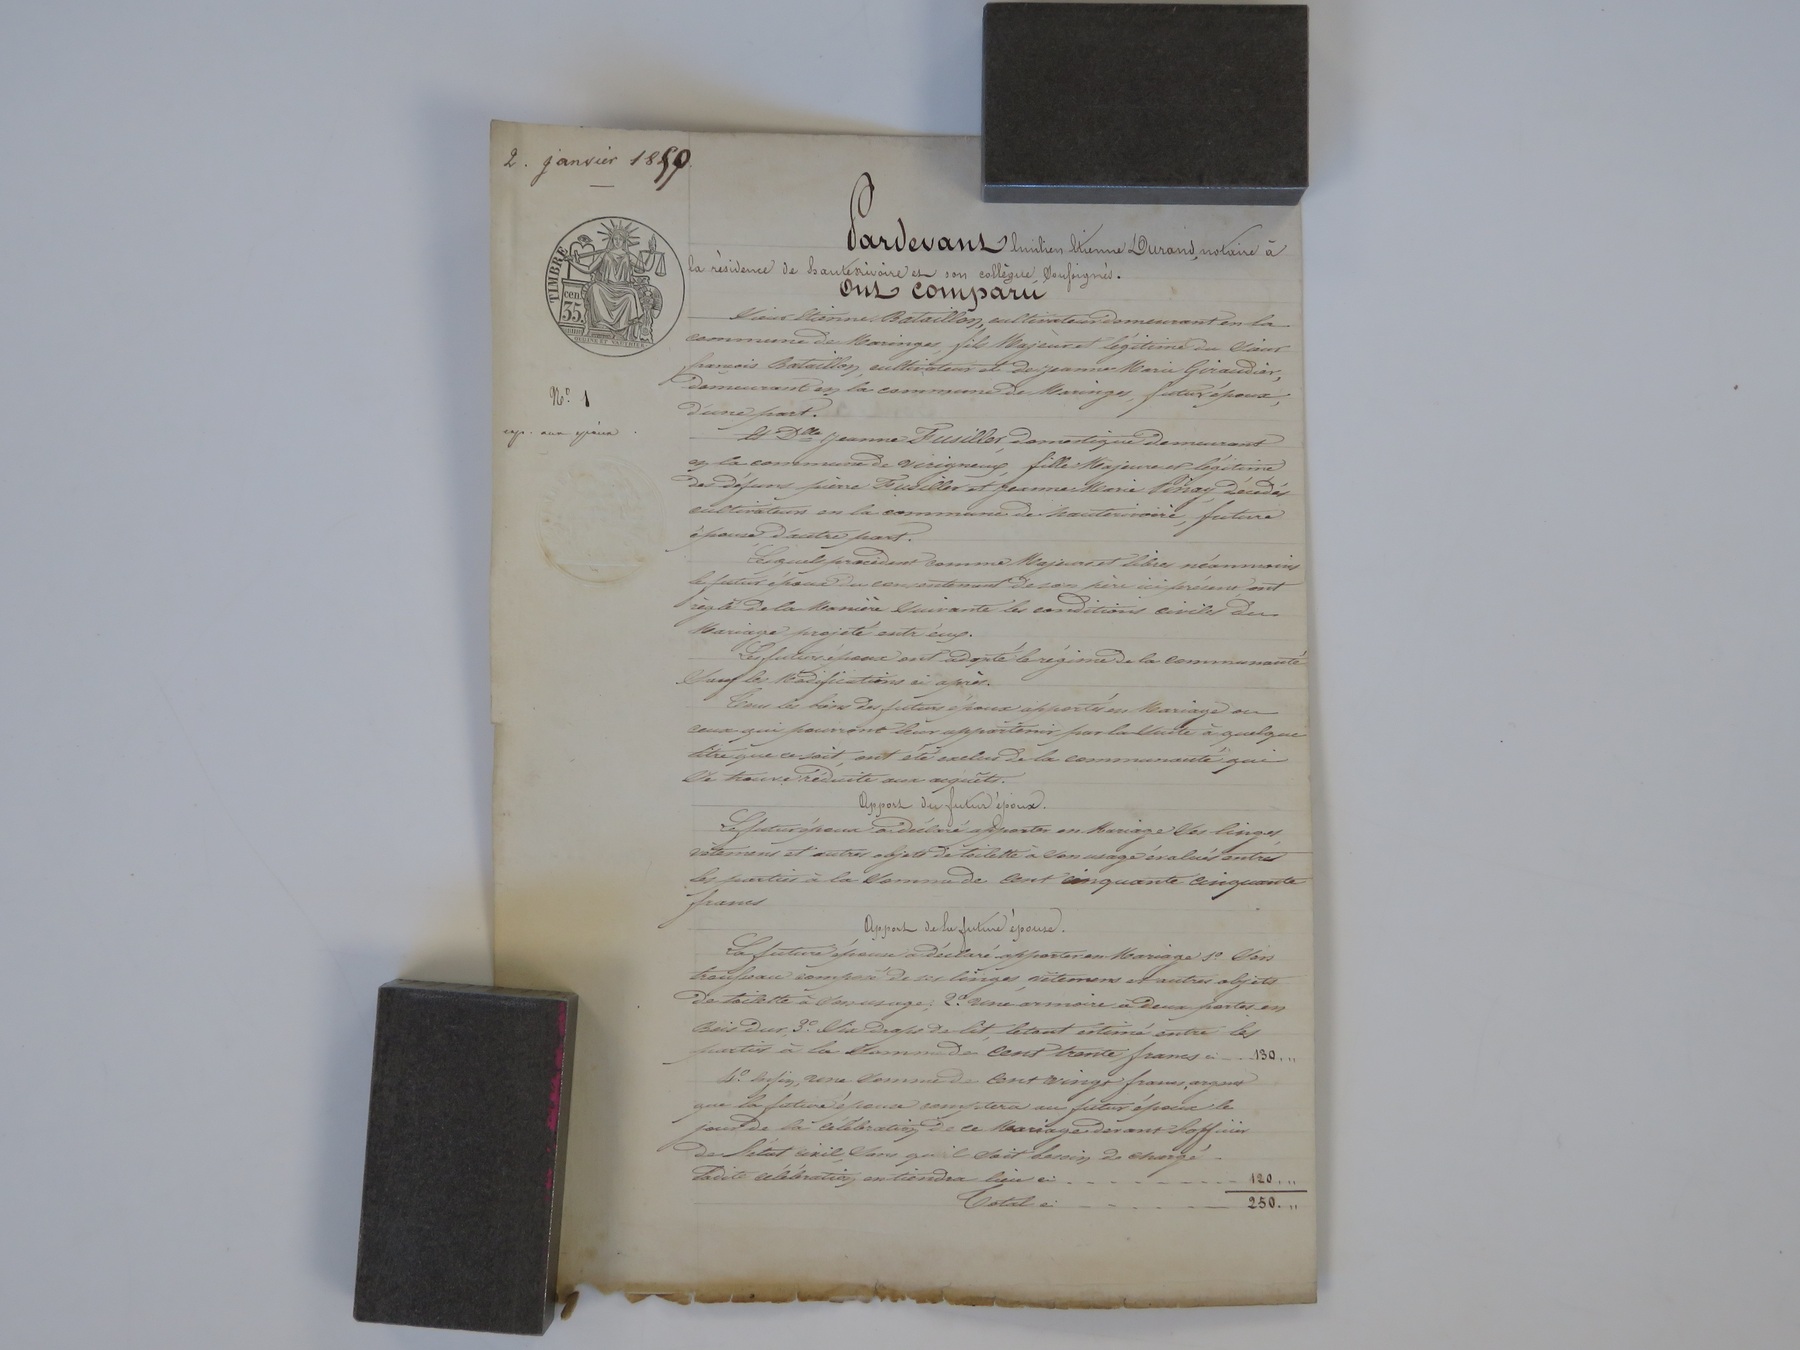 2. janvier 1859.
TIMBRE
cen.
35.
N.º 1
exp. aux époux.
Pardevant Etienne Durand, notaire à
la résidence de hauterivoire et son collègue Soussignés.
Ont comparu
Sieur Etienne Bataillon, cultivateur demeurant en la
commune de Maringes, fils Majeur et légitime du Sieur
françois Bataillon, cultivateur et de jeanne Marie Giraudier,
demeurant en la commune de Maringes, futur époux,
d'une part.
Et Dlle jeanne Fusiller domestique demeurant
en la commune de virigneux, fille Majeure et légitime
des défunts pierre Fusiller et jeanne Marie Pinay décédés
cultivateurs en la commune de hauterivoire, future
épouse, d'autre part.
Lesquels procédant comme Majeurs et libres néanmoins
le futur époux du consentement de son père ici présent, ont
réglé de la Manière Suivante les conditions civiles du
Mariage projeté entr'eux.
Les futurs époux ont adopté le régime de la communauté
Sauf les Modifications ci après.
Tous les biens des futurs époux apportés en Mariage ou
ceux qui pourront leur appartenir par la Suite à quelque
titre que ce soit, ont été exclus de la communauté qui
Se trouve réduite aux acquêts.
Apport du futur époux.
Le futur époux a déclaré apporter en Mariage Ses linges
vêtemens et autres objets de toilette à Son usage évalués entre
les parties à la Somme de cent cinquante cinquante
francs
Apport de la future épouse.
La future épouse a déclaré apporter en Mariage 1º Son
trousseau composé de ses linges vêtemens et autres objets
de toilette à Son usage; 2º une armoire à deux portes en
Bois dur, 3º Six draps de lit, le tout estimé entre les
parties à la Somme de cent trente francs ci 130. "
4º Enfin, une Somme de cent vingt francs argent
que la future épouse comptera au futur époux le
jour de la célébration de ce Mariage devant l'officier
de l'état civil, Sans qu'il Soit besoin de chargé
ladite célébration en tiendra lieu ci 120. "
Total ci 250. "